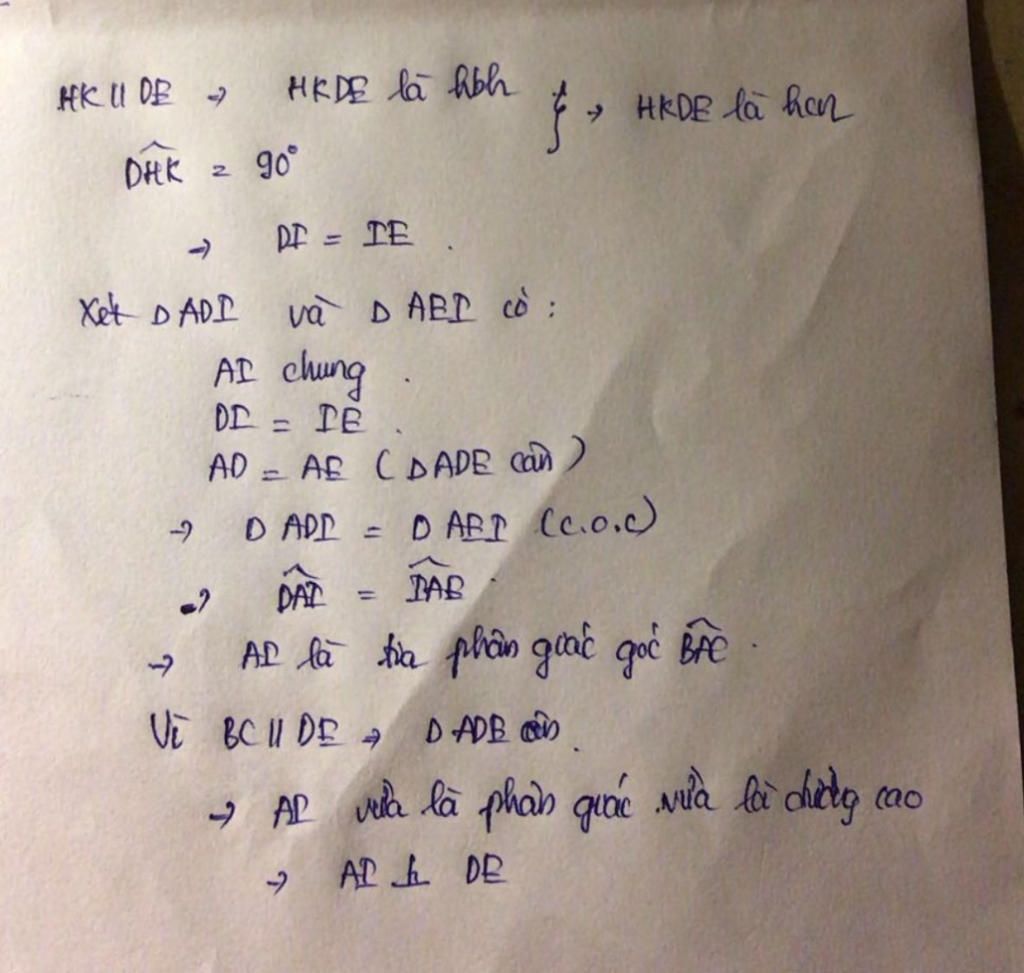 HK || DE → HKDE là hbh } → HKDE là hcn
\widehat{DHK} = 90°
→ DI = IE .
Xét Δ ADI và Δ AEI có :
AI chung .
DI = IE .
AD = AE ( Δ ADE cân )
→ Δ ADI = Δ AEI (c.c.c)
→ \widehat{DAI} = \widehat{IAE} .
→ AI là tia phân giác góc \widehat{BAC} .
Vì BC || DE → Δ ADE cân .
→ AI vừa là phân giác vừa là đường cao
→ AI ⊥ DE